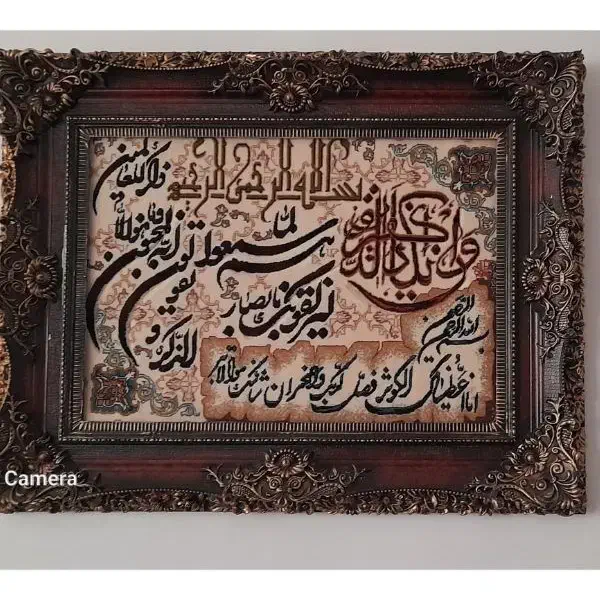 بسم الله الرحمن الرحيم
وان يكاد الذين كفروا
ليزلقونك بابصار
هم لما سمعوا
الذكر و
يقولون انه لمجنون وما هو الا
ذكر للعالمين
بسم الله الرحمن الرحيم
انا اعطيناك الكوثر فصل لربك وانحر ان شانئك هو الابتر
Camera